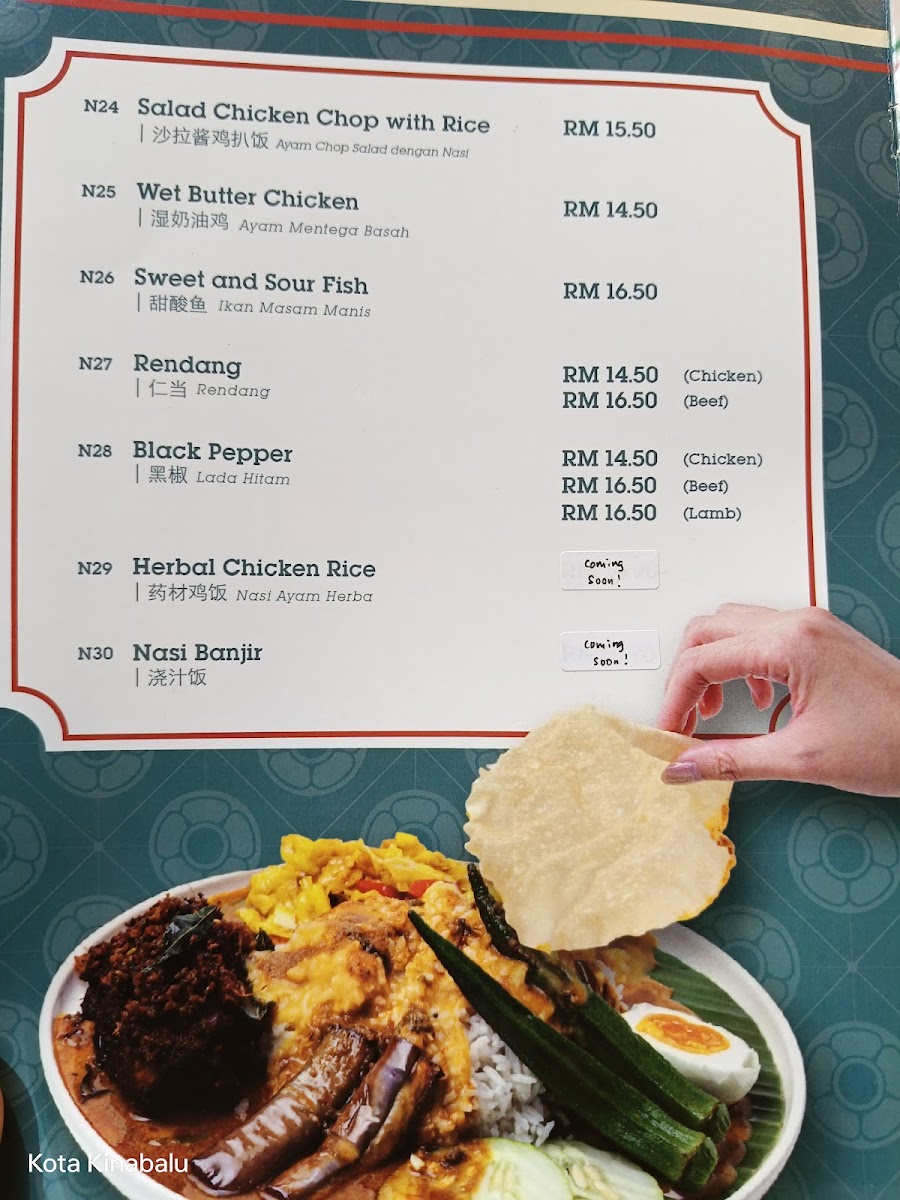 N24 Salad Chicken Chop with Rice RM 15.50
| 沙拉酱鸡扒饭 Ayam Chop Salad dengan Nasi
N25 Wet Butter Chicken RM 14.50
| 湿奶油鸡 Ayam Mentega Basah
N26 Sweet and Sour Fish RM 16.50
| 甜酸鱼 Ikan Masam Manis
N27 Rendang RM 14.50 (Chicken)
| 仁当 Rendang RM 16.50 (Beef)
N28 Black Pepper RM 14.50 (Chicken)
| 黑椒 Lada Hitam RM 16.50 (Beef)
RM 16.50 (Lamb)
N29 Herbal Chicken Rice Coming
| 药材鸡饭 Nasi Ayam Herba Soon!
N30 Nasi Banjir Coming
| 浇汁饭 Soon!
Kota Kinabalu